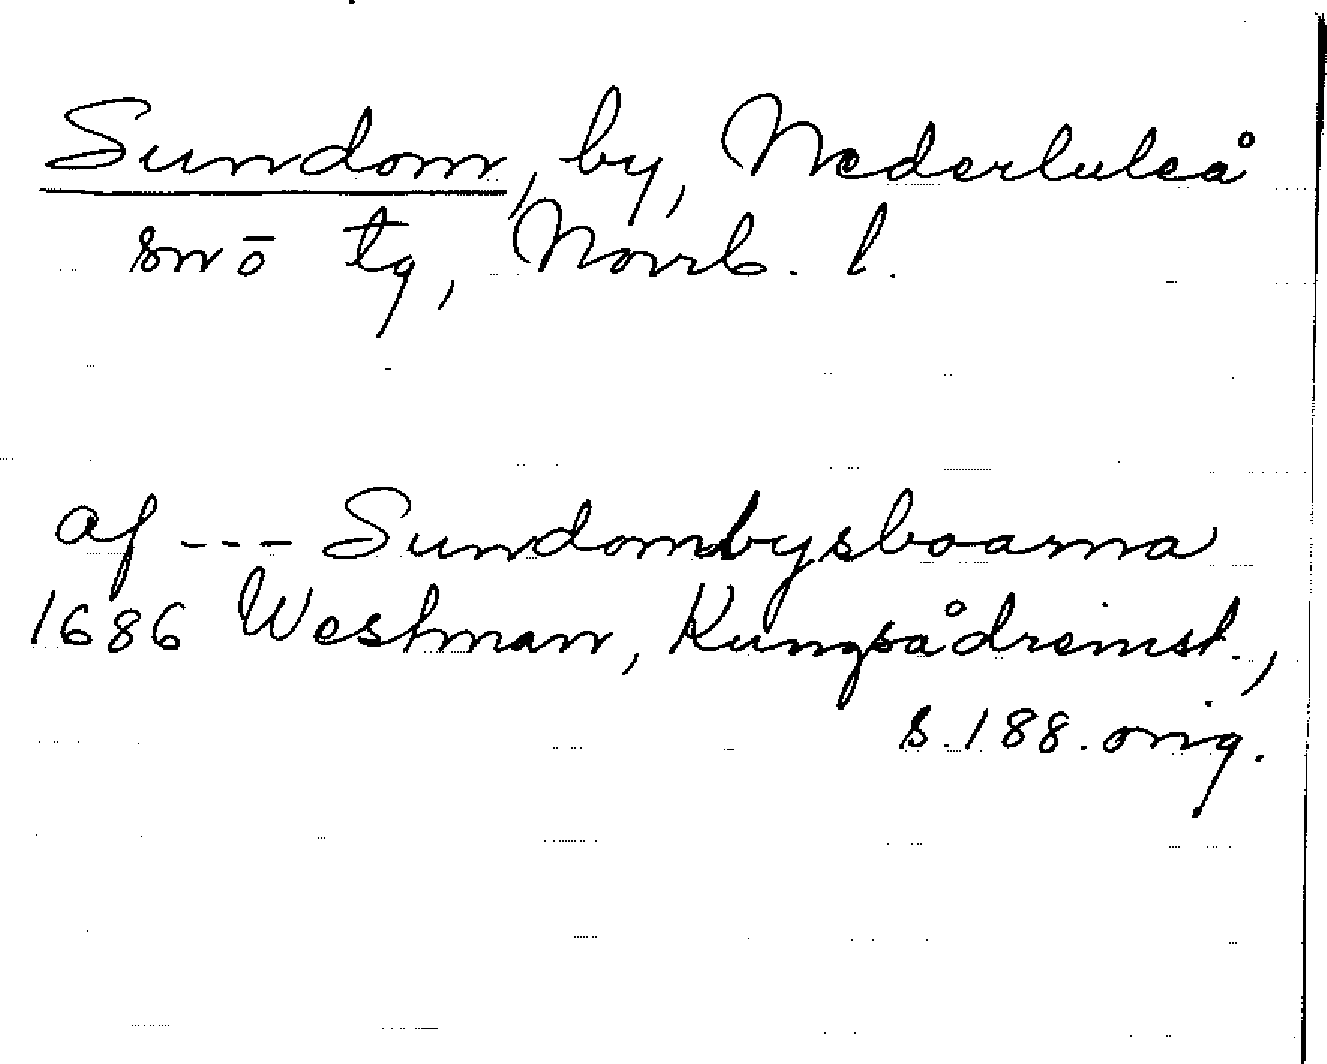 Sundom, by, Nederluleå
sn o tg, Norrb. l.
af --- Sundombysboarna
1686 Westman, Kungsådreinst.,
s. 188. orig.